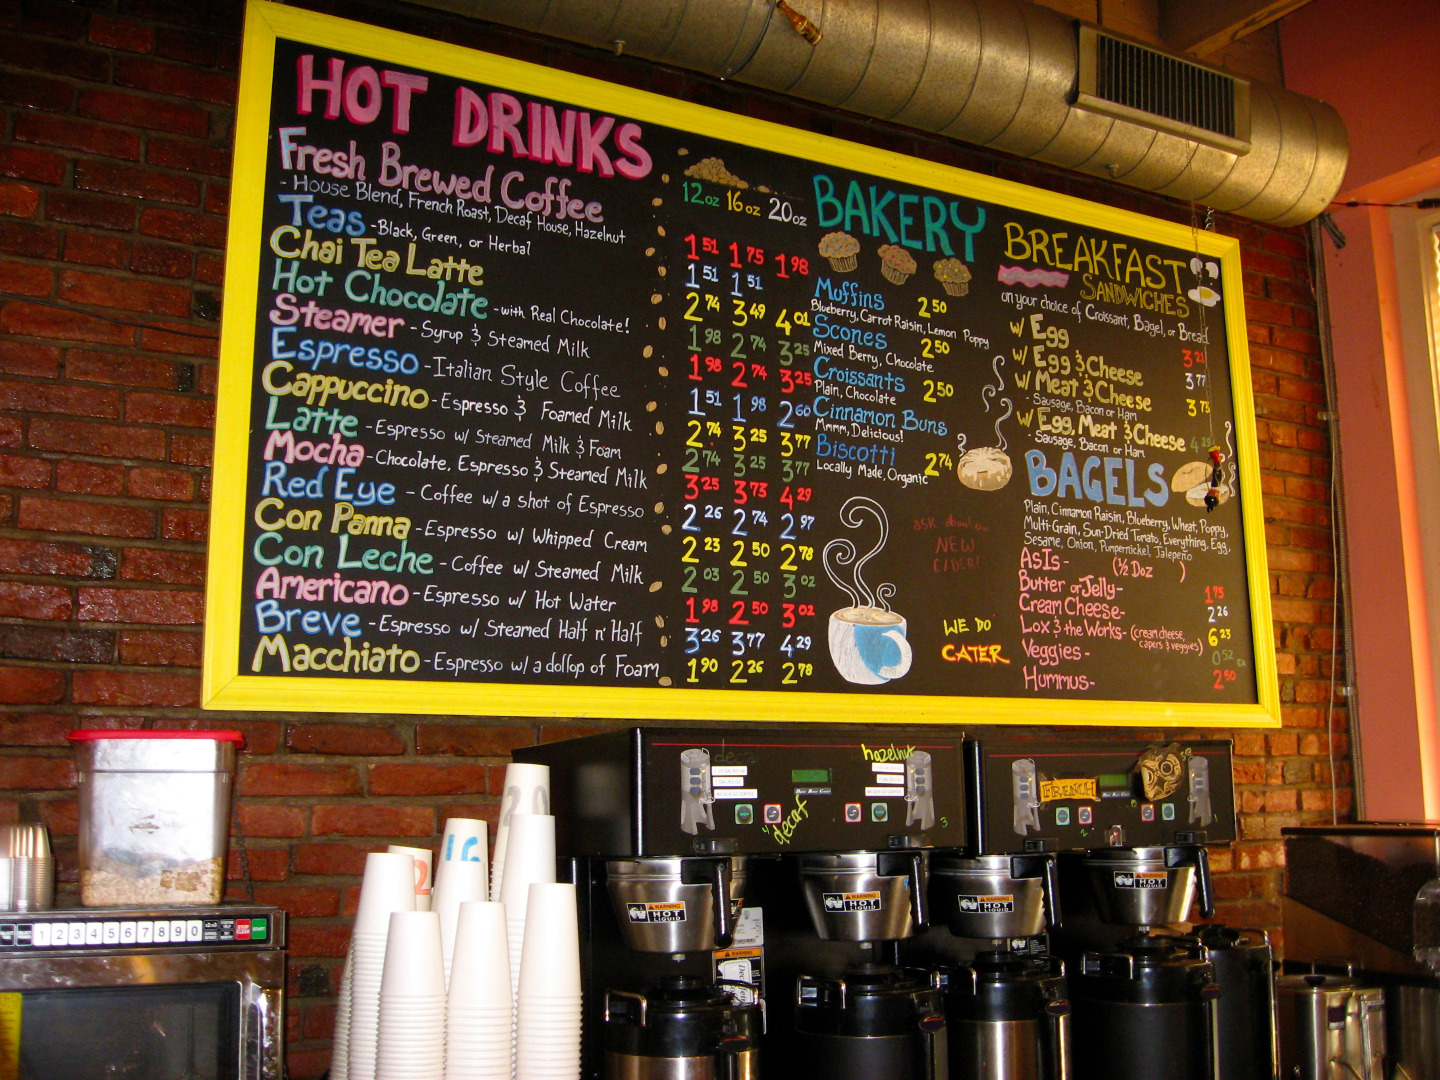 HOT DRINKS
Fresh Brewed Coffee
- House Blend, French Roast, Decaf House, Hazelnut
Teas - Black, Green, or Herbal
Chai Tea Latte
Hot Chocolate - with Real Chocolate!
Steamer - Syrup & Steamed Milk
Espresso - Italian Style Coffee
Cappuccino - Espresso & Foamed Milk
Latte - Espresso w/ Steamed Milk & Foam
Mocha - Chocolate, Espresso & Steamed Milk
Red Eye - Coffee w/ a shot of Espresso
Con Panna - Espresso w/ Whipped Cream
Con Leche - Coffee w/ Steamed Milk
Americano - Espresso w/ Hot Water
Breve - Espresso w/ Steamed Half n' Half
Macchiato - Espresso w/ a dollop of Foam
12oz 16oz 20oz
1 51 1 75 1 98
1 51 1 51
2 74 3 49 4 01
1 98 2 74 3 25
1 98 2 74 3 25
1 51 1 98 2 60
2 74 3 25 3 77
2 74 3 25 3 77
3 25 3 73 4 29
2 26 2 74 2 97
2 23 2 50 2 78
2 03 2 50 3 02
1 98 2 50 3 02
3 26 3 77 4 29
1 90 2 26 2 78
BAKERY
Muffins 2 50
Blueberry, Carrot Raisin, Lemon Poppy
Scones 2 50
Mixed Berry, Chocolate
Croissants 2 50
Plain, Chocolate
Cinnamon Buns
Mmmm, Delicious!
Biscotti 2 74
Locally Made, Organic
ask about our
NEW
CIDER!
WE DO
CATER
BREAKFAST
SANDWICHES
on your choice of Croissant, Bagel, or Bread
w/ Egg 3 21
w/ Egg & Cheese 3 77
w/ Meat & Cheese 3 73
- Sausage, Bacon or Ham
w/ Egg, Meat & Cheese 4 29
- Sausage, Bacon or Ham
BAGELS
Plain, Cinnamon Raisin, Blueberry, Wheat, Poppy,
Multi-Grain, Sun-Dried Tomato, Everything, Egg,
Sesame, Onion, Pumpernickel, Jalepeño
As Is - (½ Doz )
Butter or Jelly - 1 75
Cream Cheese - 2 26
Lox & the Works - (cream cheese, capers & veggies) 6 23
Veggies - 0 52 ea
Hummus - 2 50
decaf
hazelnut
decaf
FRENCH
4
3
2
1
WARNING
HOT
LIQUID
WARNING
HOT
LIQUID
WARNING
HOT
LIQUID
WARNING
HOT
LIQUID
WARNING
20
16
2
1 2 3 4 5 6 7 8 9 0
STOP
CLEAR
START